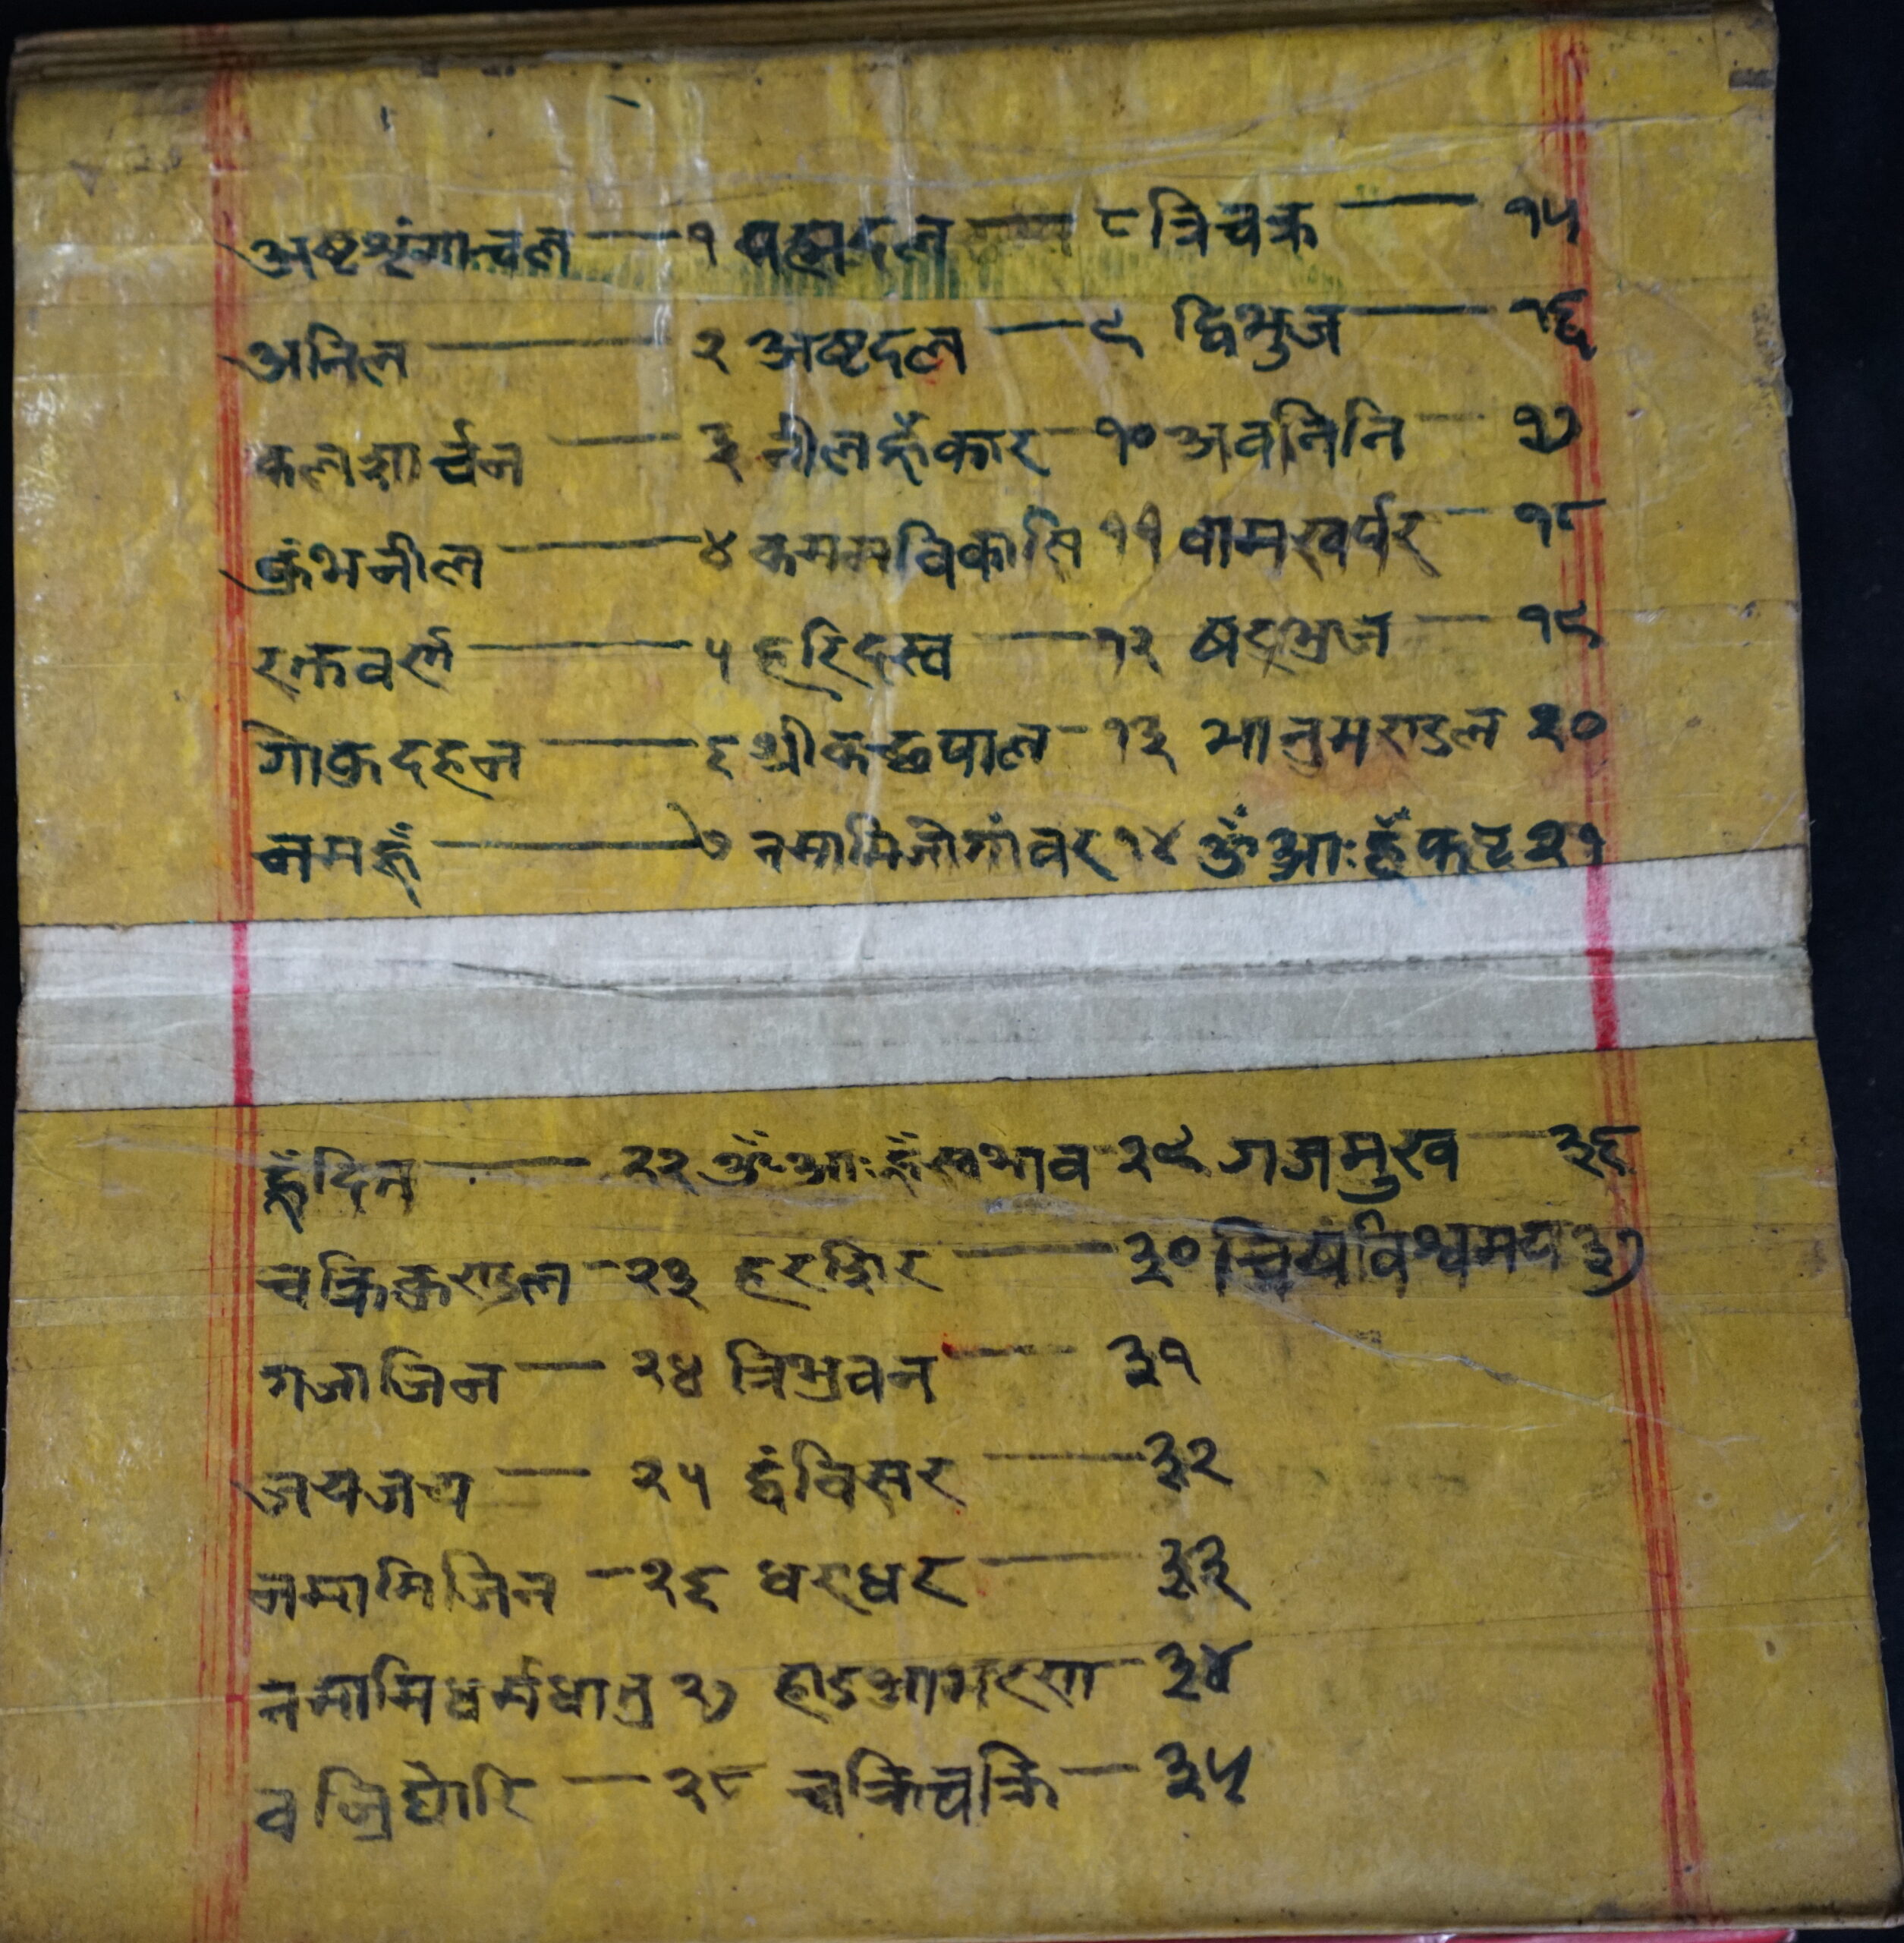 अष्टशृंगाचल — १ पद्मदल — ८ त्रिचक्र — १५
अनिल — २ अष्टदल — ९ द्विभुज — १६
कलशार्चन — ३ नीलहूँकार — १० अवनिनि — १७
कुंभनील — ४ कमलविकासि ११ वामखर्पर — १८
रक्तवर्ण — ५ हरिदस्व — १२ षट्भुज — १९
गोकुदहन — ६ श्रीकछपाल — १३ भानुमण्डल २०
नमहूँ — ७ नमामिजोगांवर १४ ॐआःहूँफट २१
हूँदिन — २२ ॐआःहूँस्वभाव २९ गजमुख — ३६
चक्रिकुण्डल — २३ हरक्षिर — ३० विश्वमय ३७
गजाजिन — २४ त्रिभुवन — ३१
जयजय — २५ द्वंविसर — ३२
नमामिजिन — २६ धरधर — ३३
नमामिधर्मधातु २७ हाडआभरणा — ३४
वज्रिघोरि — २८ चक्रिचक्रि — ३५